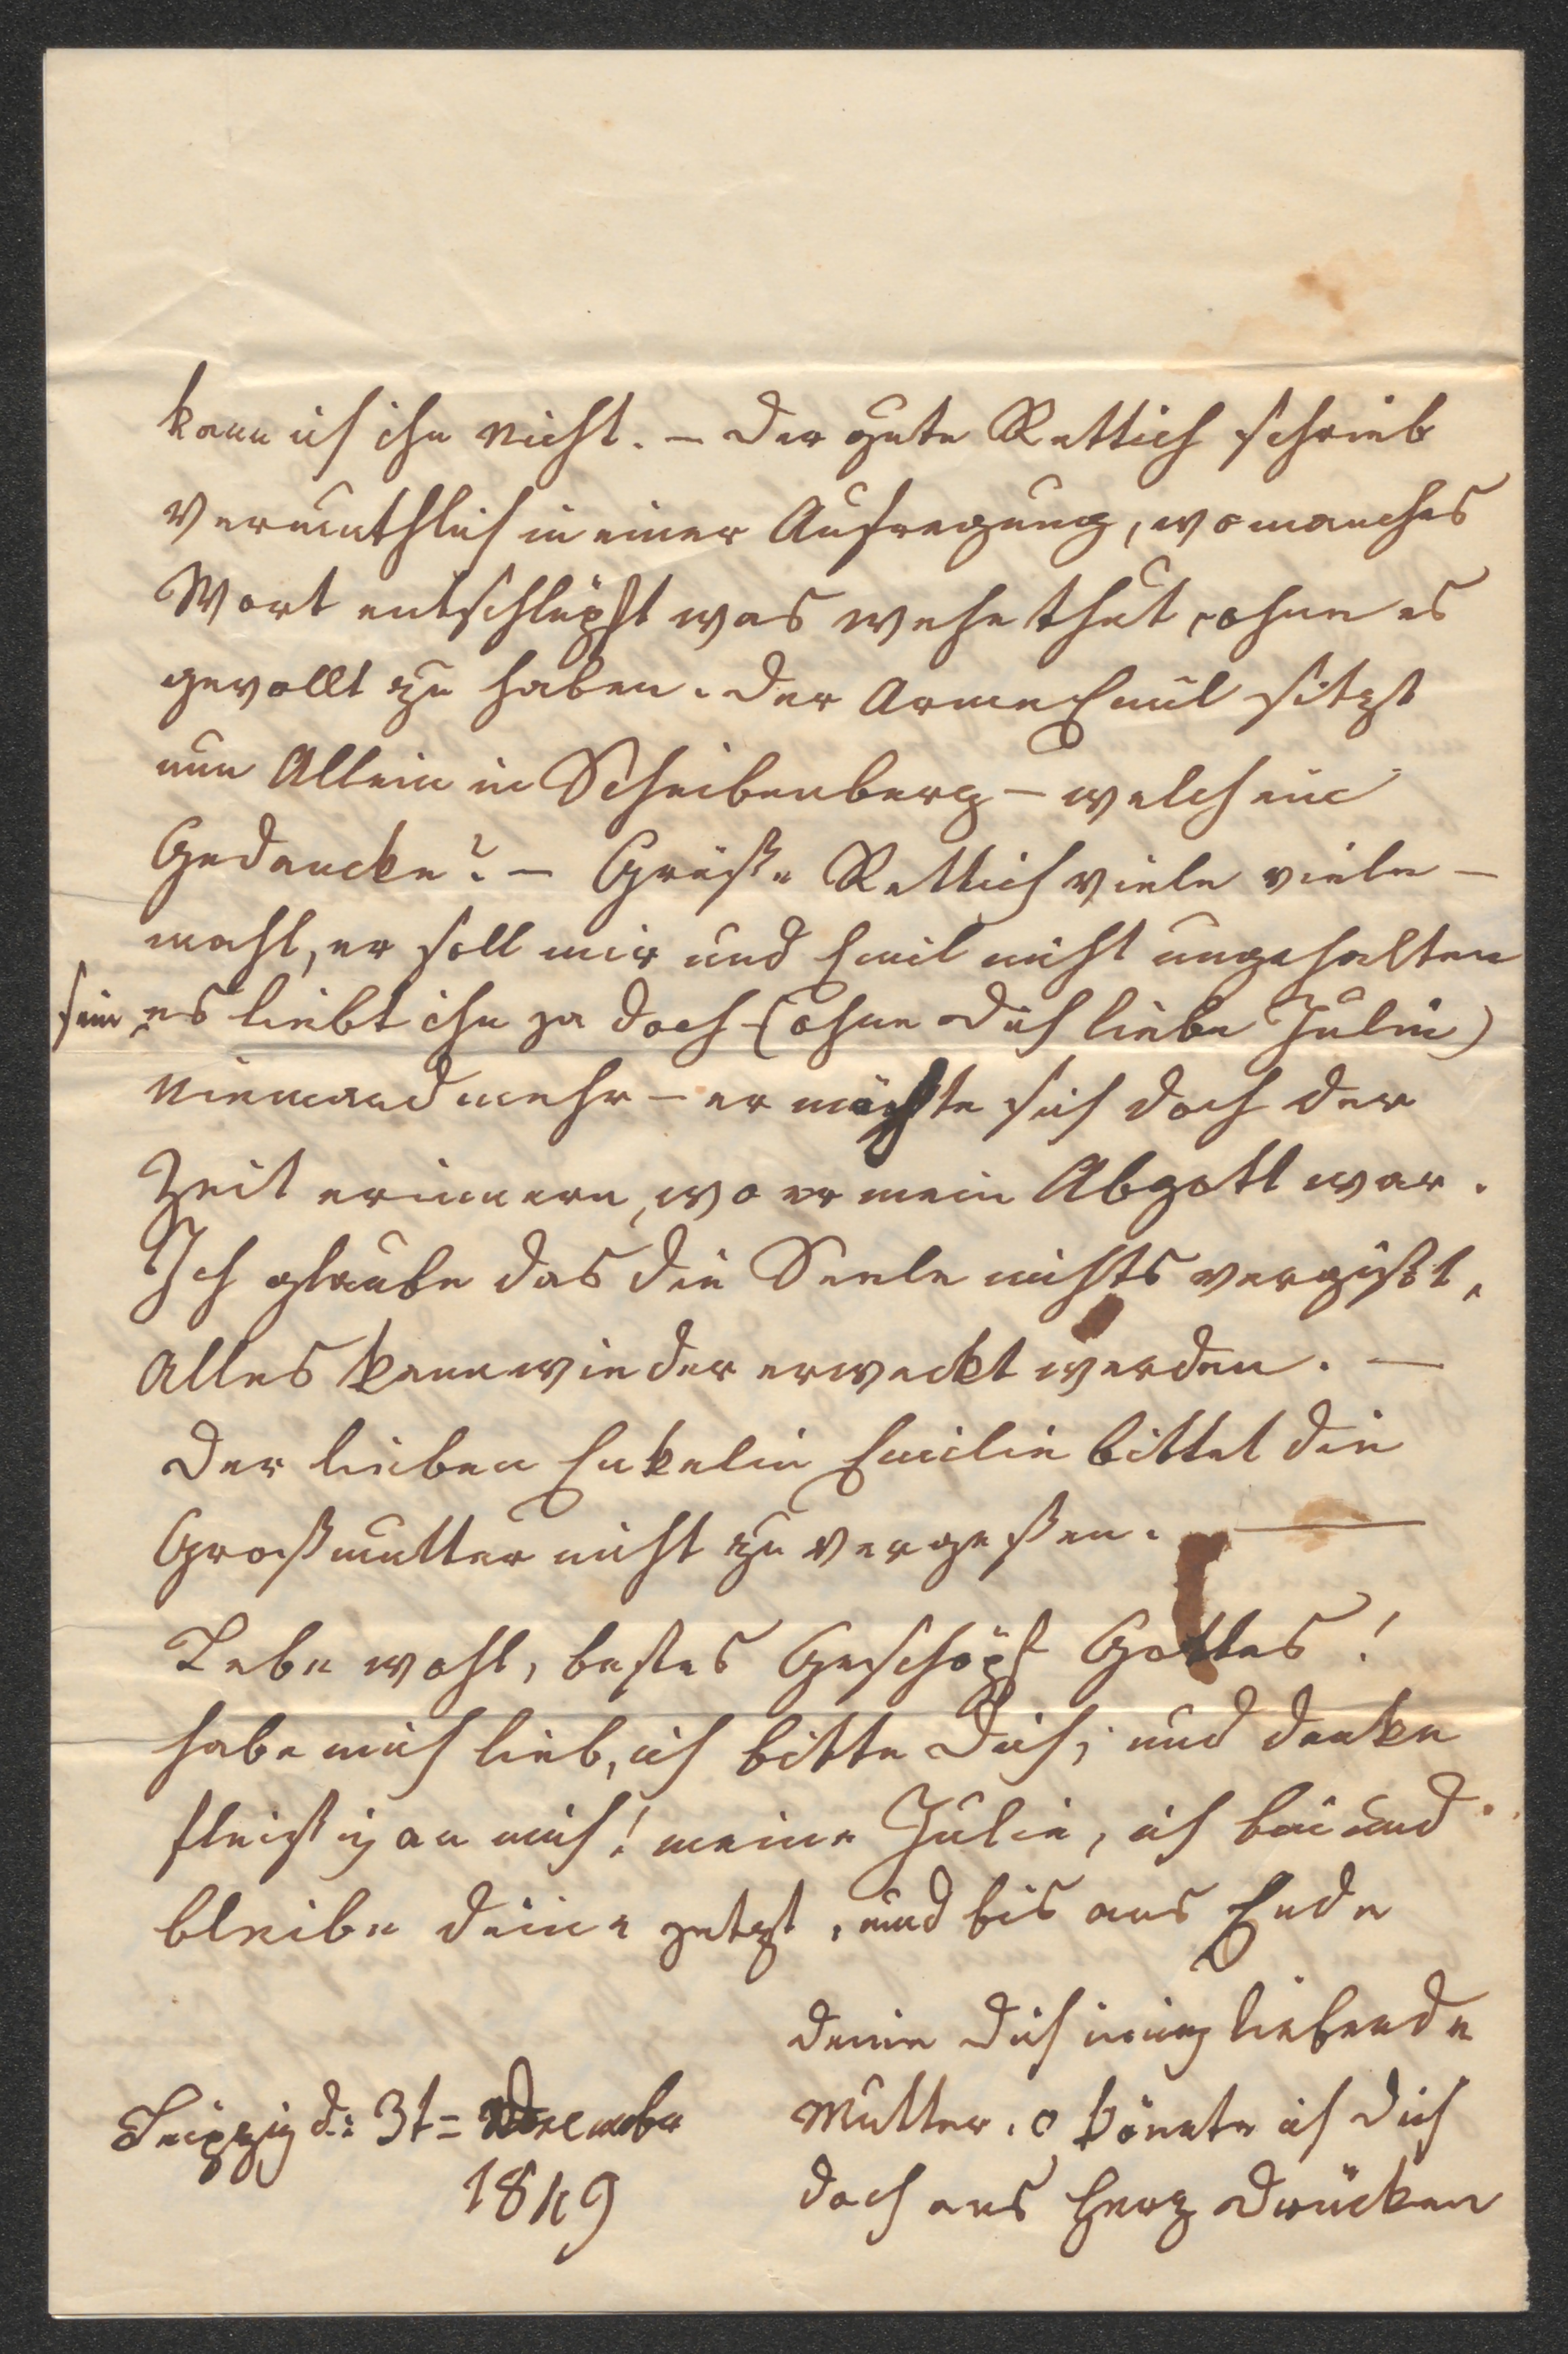 kann ich ihn nicht. – Der gute Rettich schrieb
vermuthlich in einer Aufregung, wo manches
Wort entschlüpft was wehe thut, ohne es
gewollt zu haben. Der Arme Emil sitzt
nun Allein in Scheibenberg – welch ein
Gedancke? – Grüße Rettich viele viele –
mahl, er soll mir und Emil nicht ungehalten
sein, es liebt ihn ja doch – (ohne Dich liebe Julie)
niemand mehr – er möchte sich doch der
Zeit erinnern, wo er mein Abgott war.
Ich glaube das die Seele nichts vergißt,
Alles kann wieder erweckt werden. —
Der lieben Enkelin Emilie bittet die
Großmutter nicht zu vergeßen. —
Lebe wohl, bestes Geschöpf Gottes!
habe mich lieb, ich bitte Dich, und denke
fleißig an mich! meine Julie, ich bin und
bleibe deine jetzt, und bis ans Ende
deine Dich innig liebende
Mutter. o könnte ich Dich
doch ans Herz drücken
Leipzig d: 3t= December
1849